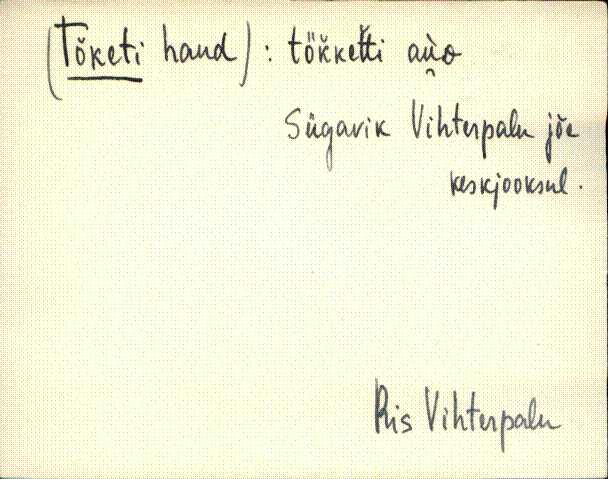 (Tõketi haud) : tökketti aùo
Sügavik Vihterpalu jõe
keskjooksul.
Ris Vihterpalu